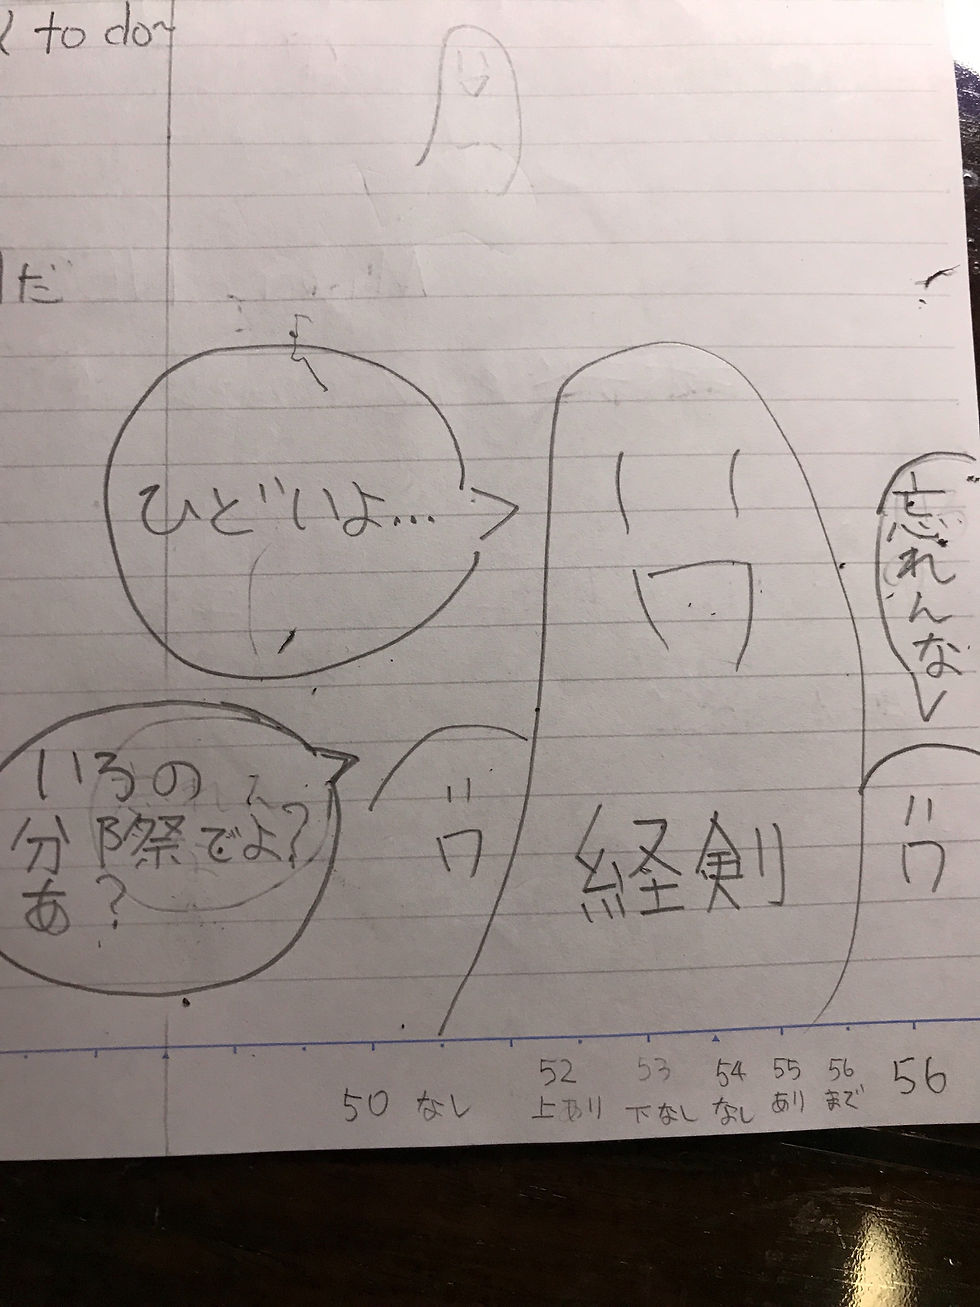 to do~
だ
ひどいよ…
忘れんなし
いろの
分際でよ?
あ?
経剣
50 なし
52 上あり
53 下なし
54 なし
55 あり
56 まで
56